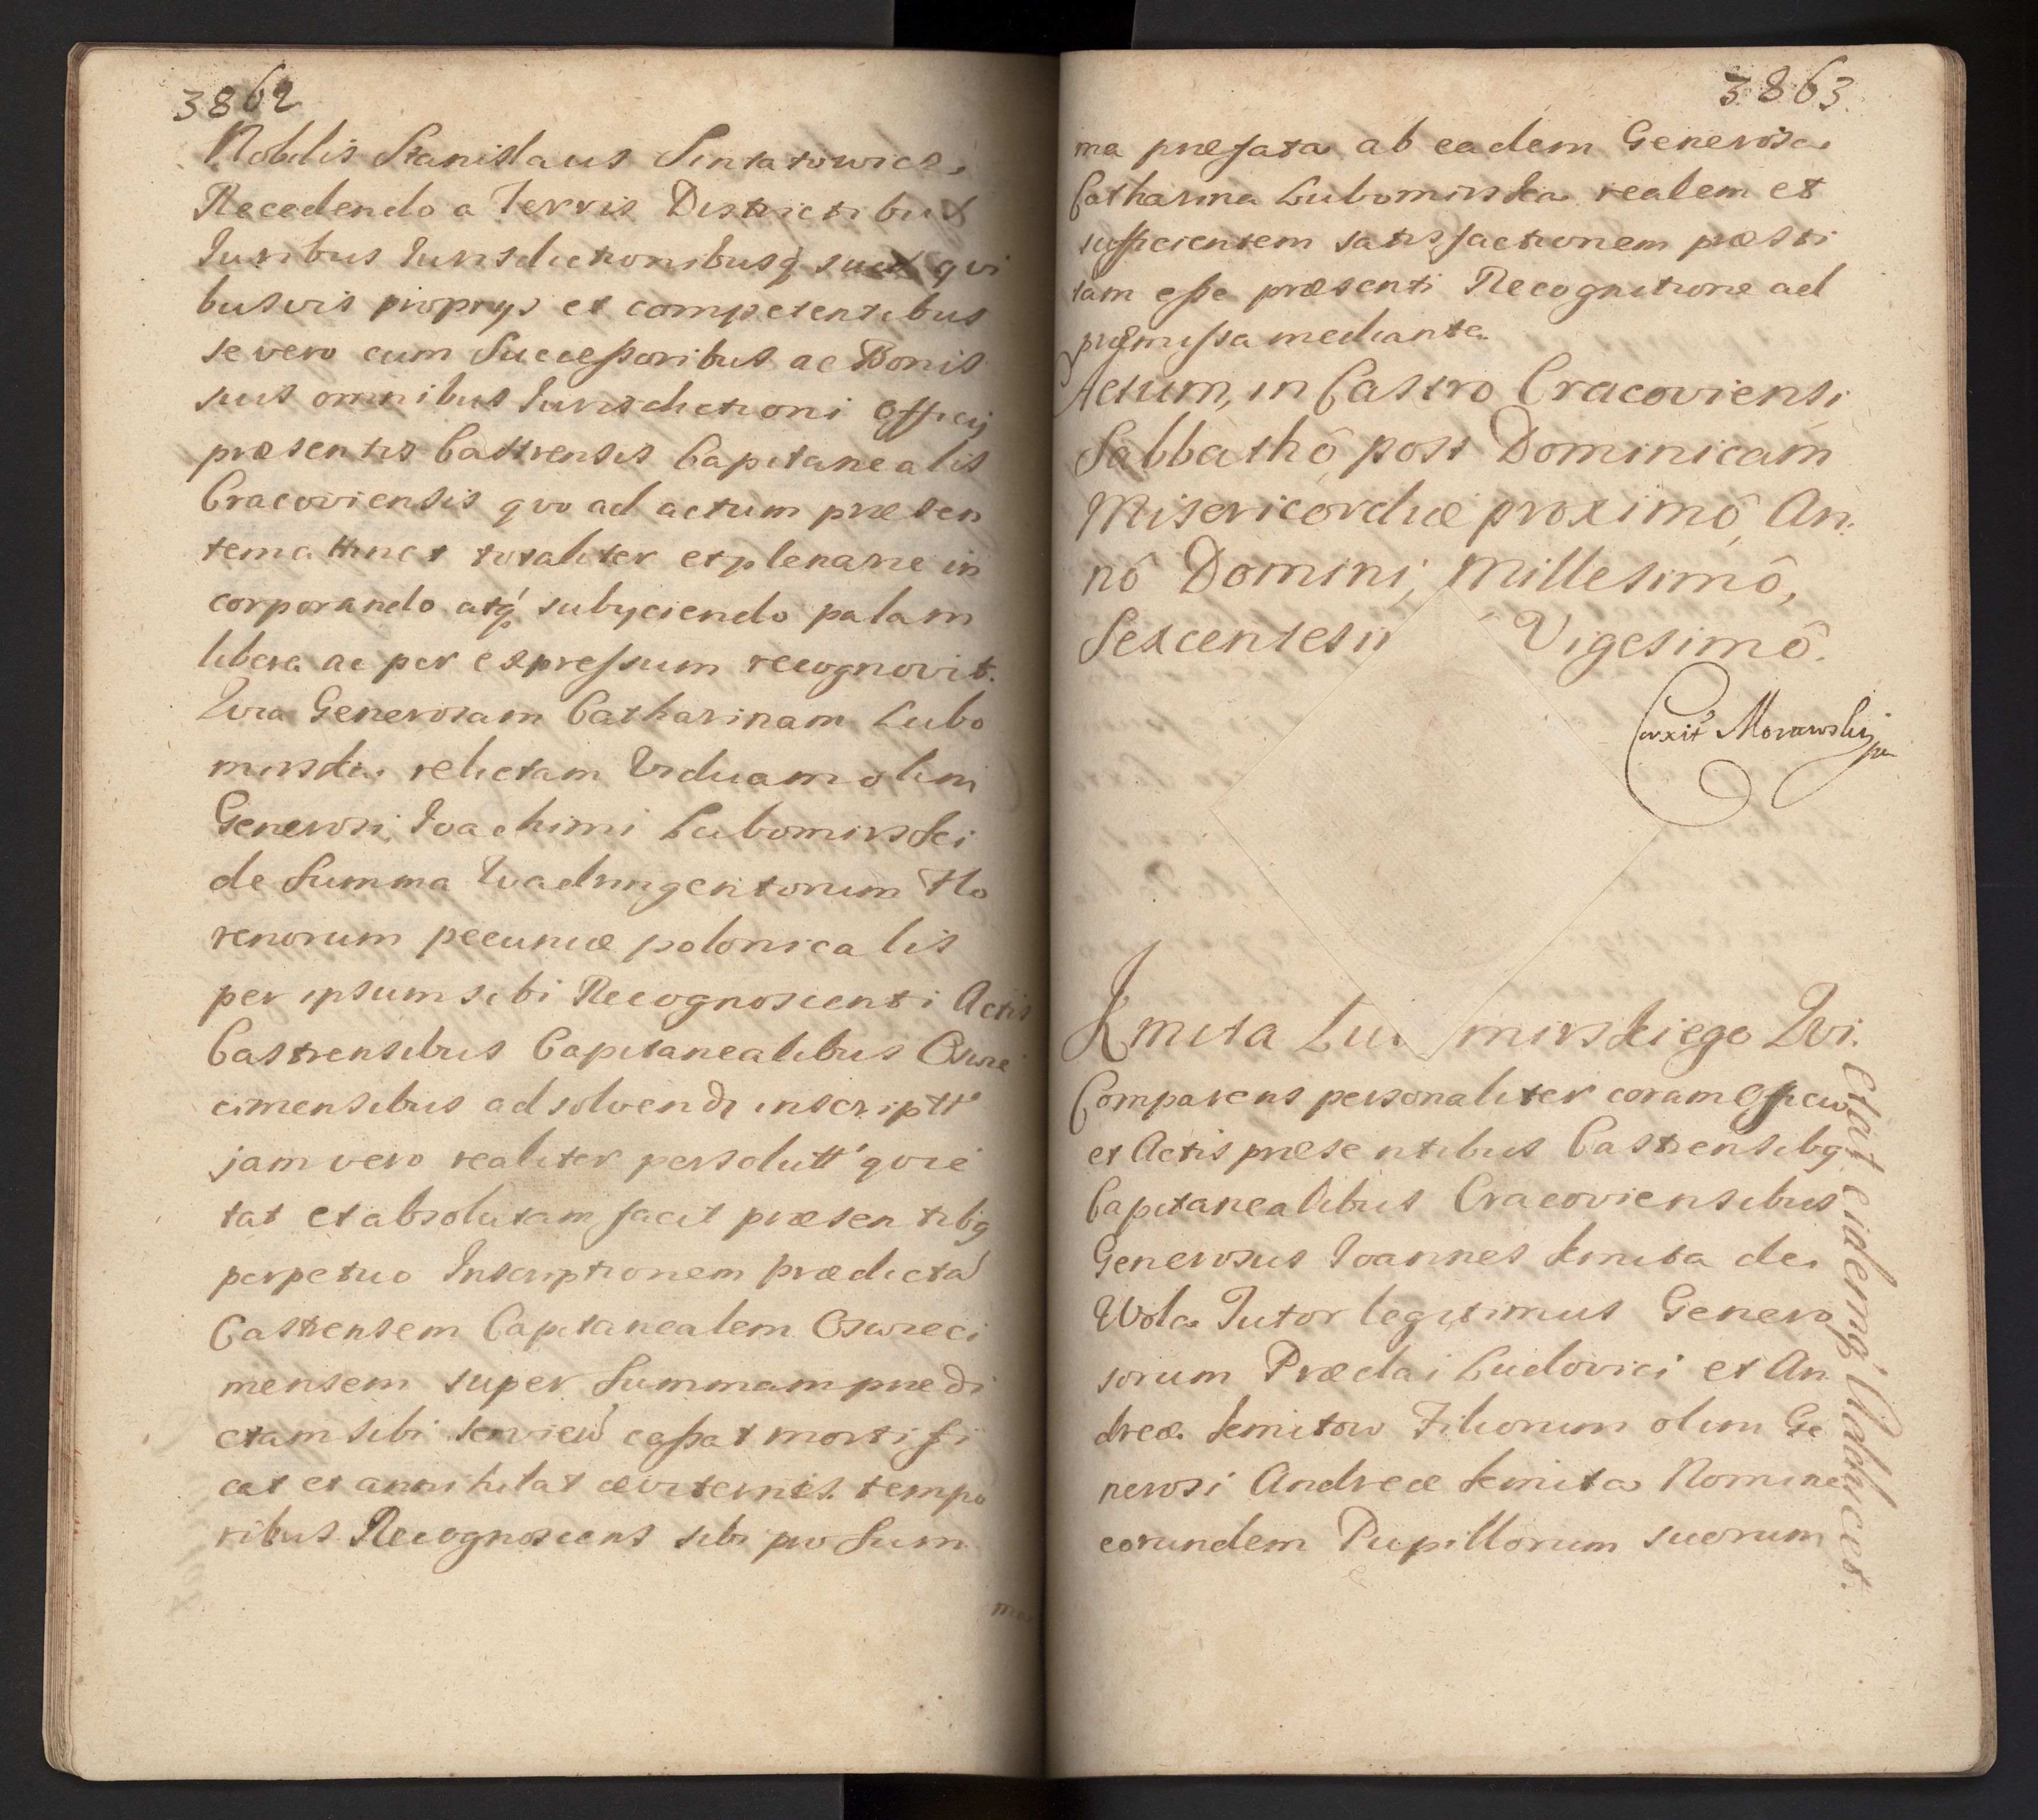 3862
Nobilis Stanislaus Sintatowicz
Recedendo a Terris Districtibus
Iuribus Iurisdictionibusq suis qvi
busvis proprys et competentibus
se vero cum Successoribus ac Bonis
suis omnibus Iurisdictioni Officij
præsentis Castrensis Capitanealis
Cracoviensis qvo ad actum præsen
tem attinet totaliter et plenarie in
corporando atq subyciendo palam
libere ac per expressum recognovit.
Qvia Generosam Catharinam Lubo
mirska relictam Viduam olim
Generosi Ioachimi Lubomirski
de Summa Qvadringentorum Flo
renorum pecuniæ polonicalis
per ipsum sibi Recognoscenti Actis
Castrensibus Capitanealibus Oswie
cimensibus ad solvend inscriptt
jam vero realiter persolutt qvie
tat et absolutam facit præsentibq
perpetuo Inscriptionem prædicta
Castrensem Capitanealem Oswieci
mensem super Summam præ di
ctam sibi servien cassat mortifi
cat et annihilat æviternis tempo
ribus Recognoscens sibi pro Sum
ma
3863
ma præfata ab eadem Generosa
Catharina Lubomirska realem et
sufficientem satisfactionem præsti
tam esse præsenti Recognitione ad
præmissa mediante
Actum, in Castro Cracoviensi
Sabbathô post Dominicam
Misericordiæ proximô, An.
nô Domini, Millesimô,
Sexcentesi Vigesimô.
Coxit Morawski
Kmita Lu mirskiego Qvi.
Comparens personaliter coram Officio
et Actis præsentibus Castrensibq
Capitanealibus Cracoviensibus
Generosus Ioannes Kmita de
Wola Tutor legitimus Genero
sorum Prædai Ludovici et An
dreæ Kmitow Filiorum olim Ge
nerosi Andreæ Kmita Nomine
eorundem Pupillorum suorum
eidemq Adhæret.